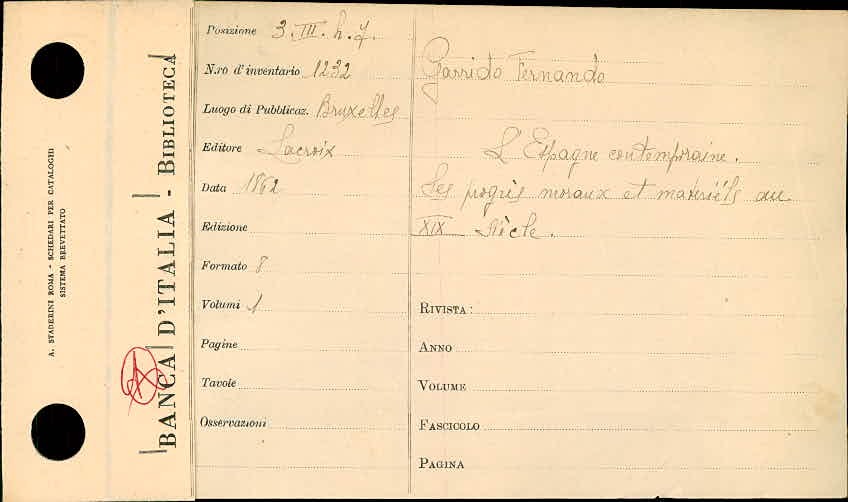 A. STADERINI ROMA - SCHEDARI PER CATALOGHI
SISTEMA BREVETTATO
BANCA D'ITALIA - BIBLIOTECA
Posizione 3. III. h. 7.
N.ro d'inventario 1232
Luogo di Pubblicaz. Bruxelles
Editore Lacroix
Data 1862
Edizione
Formato 8
Volumi 1
Pagine
Tavole
Osservazioni
Garrido Fernando
L'Espagne contemporaine.
Ses progrès moraux et matériels au
XIX siècle.
RIVISTA:
ANNO
VOLUME
FASCICOLO
PAGINA